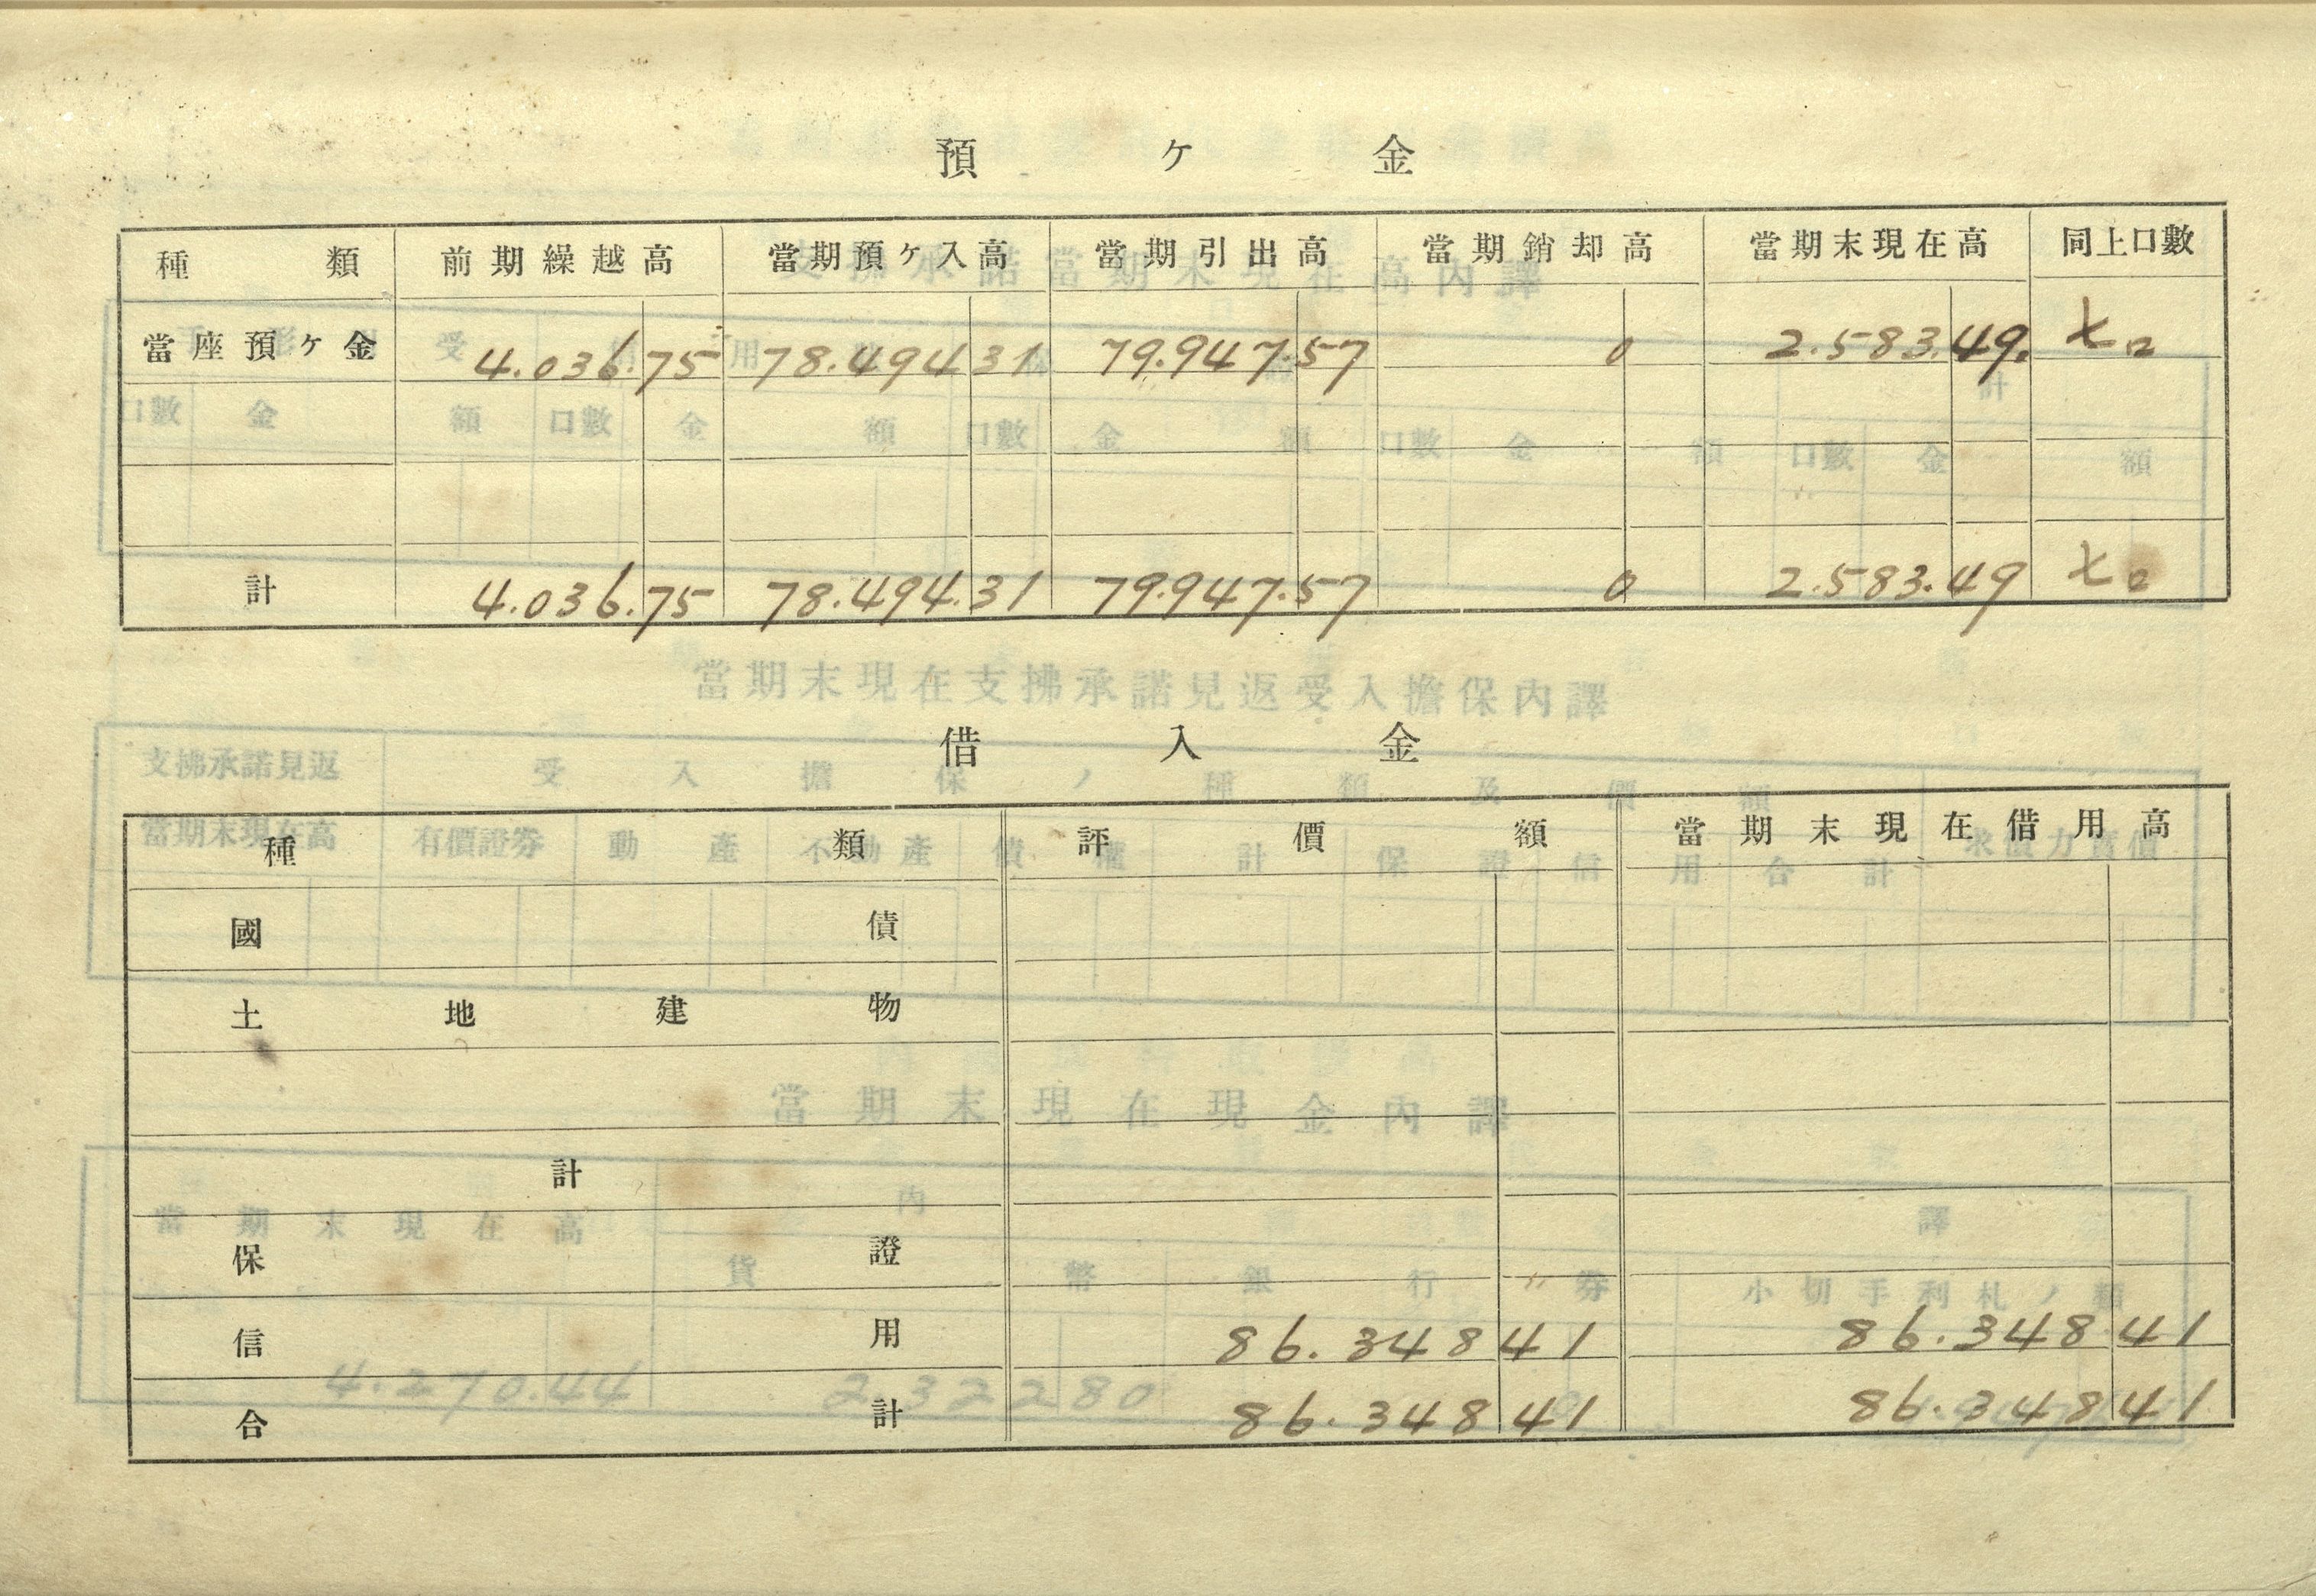 預ケ金
種類 前期繰越高 當期預ケ入高 當期引出高 當期銷却高 當期末現在高 同上口數
當座預ケ金 4.036.75 78.494 31 79.947.57 0 2.583.49.
計 4.036.75 78.494.31 79.947.57 0 2.583.49
借入金
種類 評價額 當期末現在借用高
國債
土地建物
計
保證
信用 86.348 41 86.348 41
合計 86.348 41 86.348 41